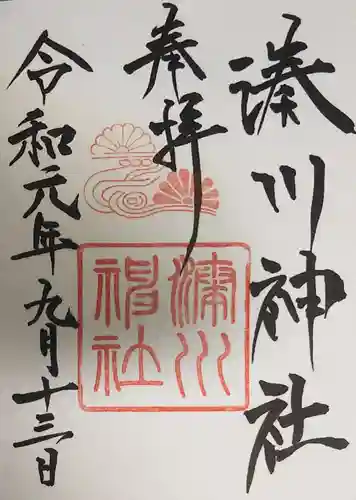 奉拝
湊川神社
湊川神社
令和元年九月十三日